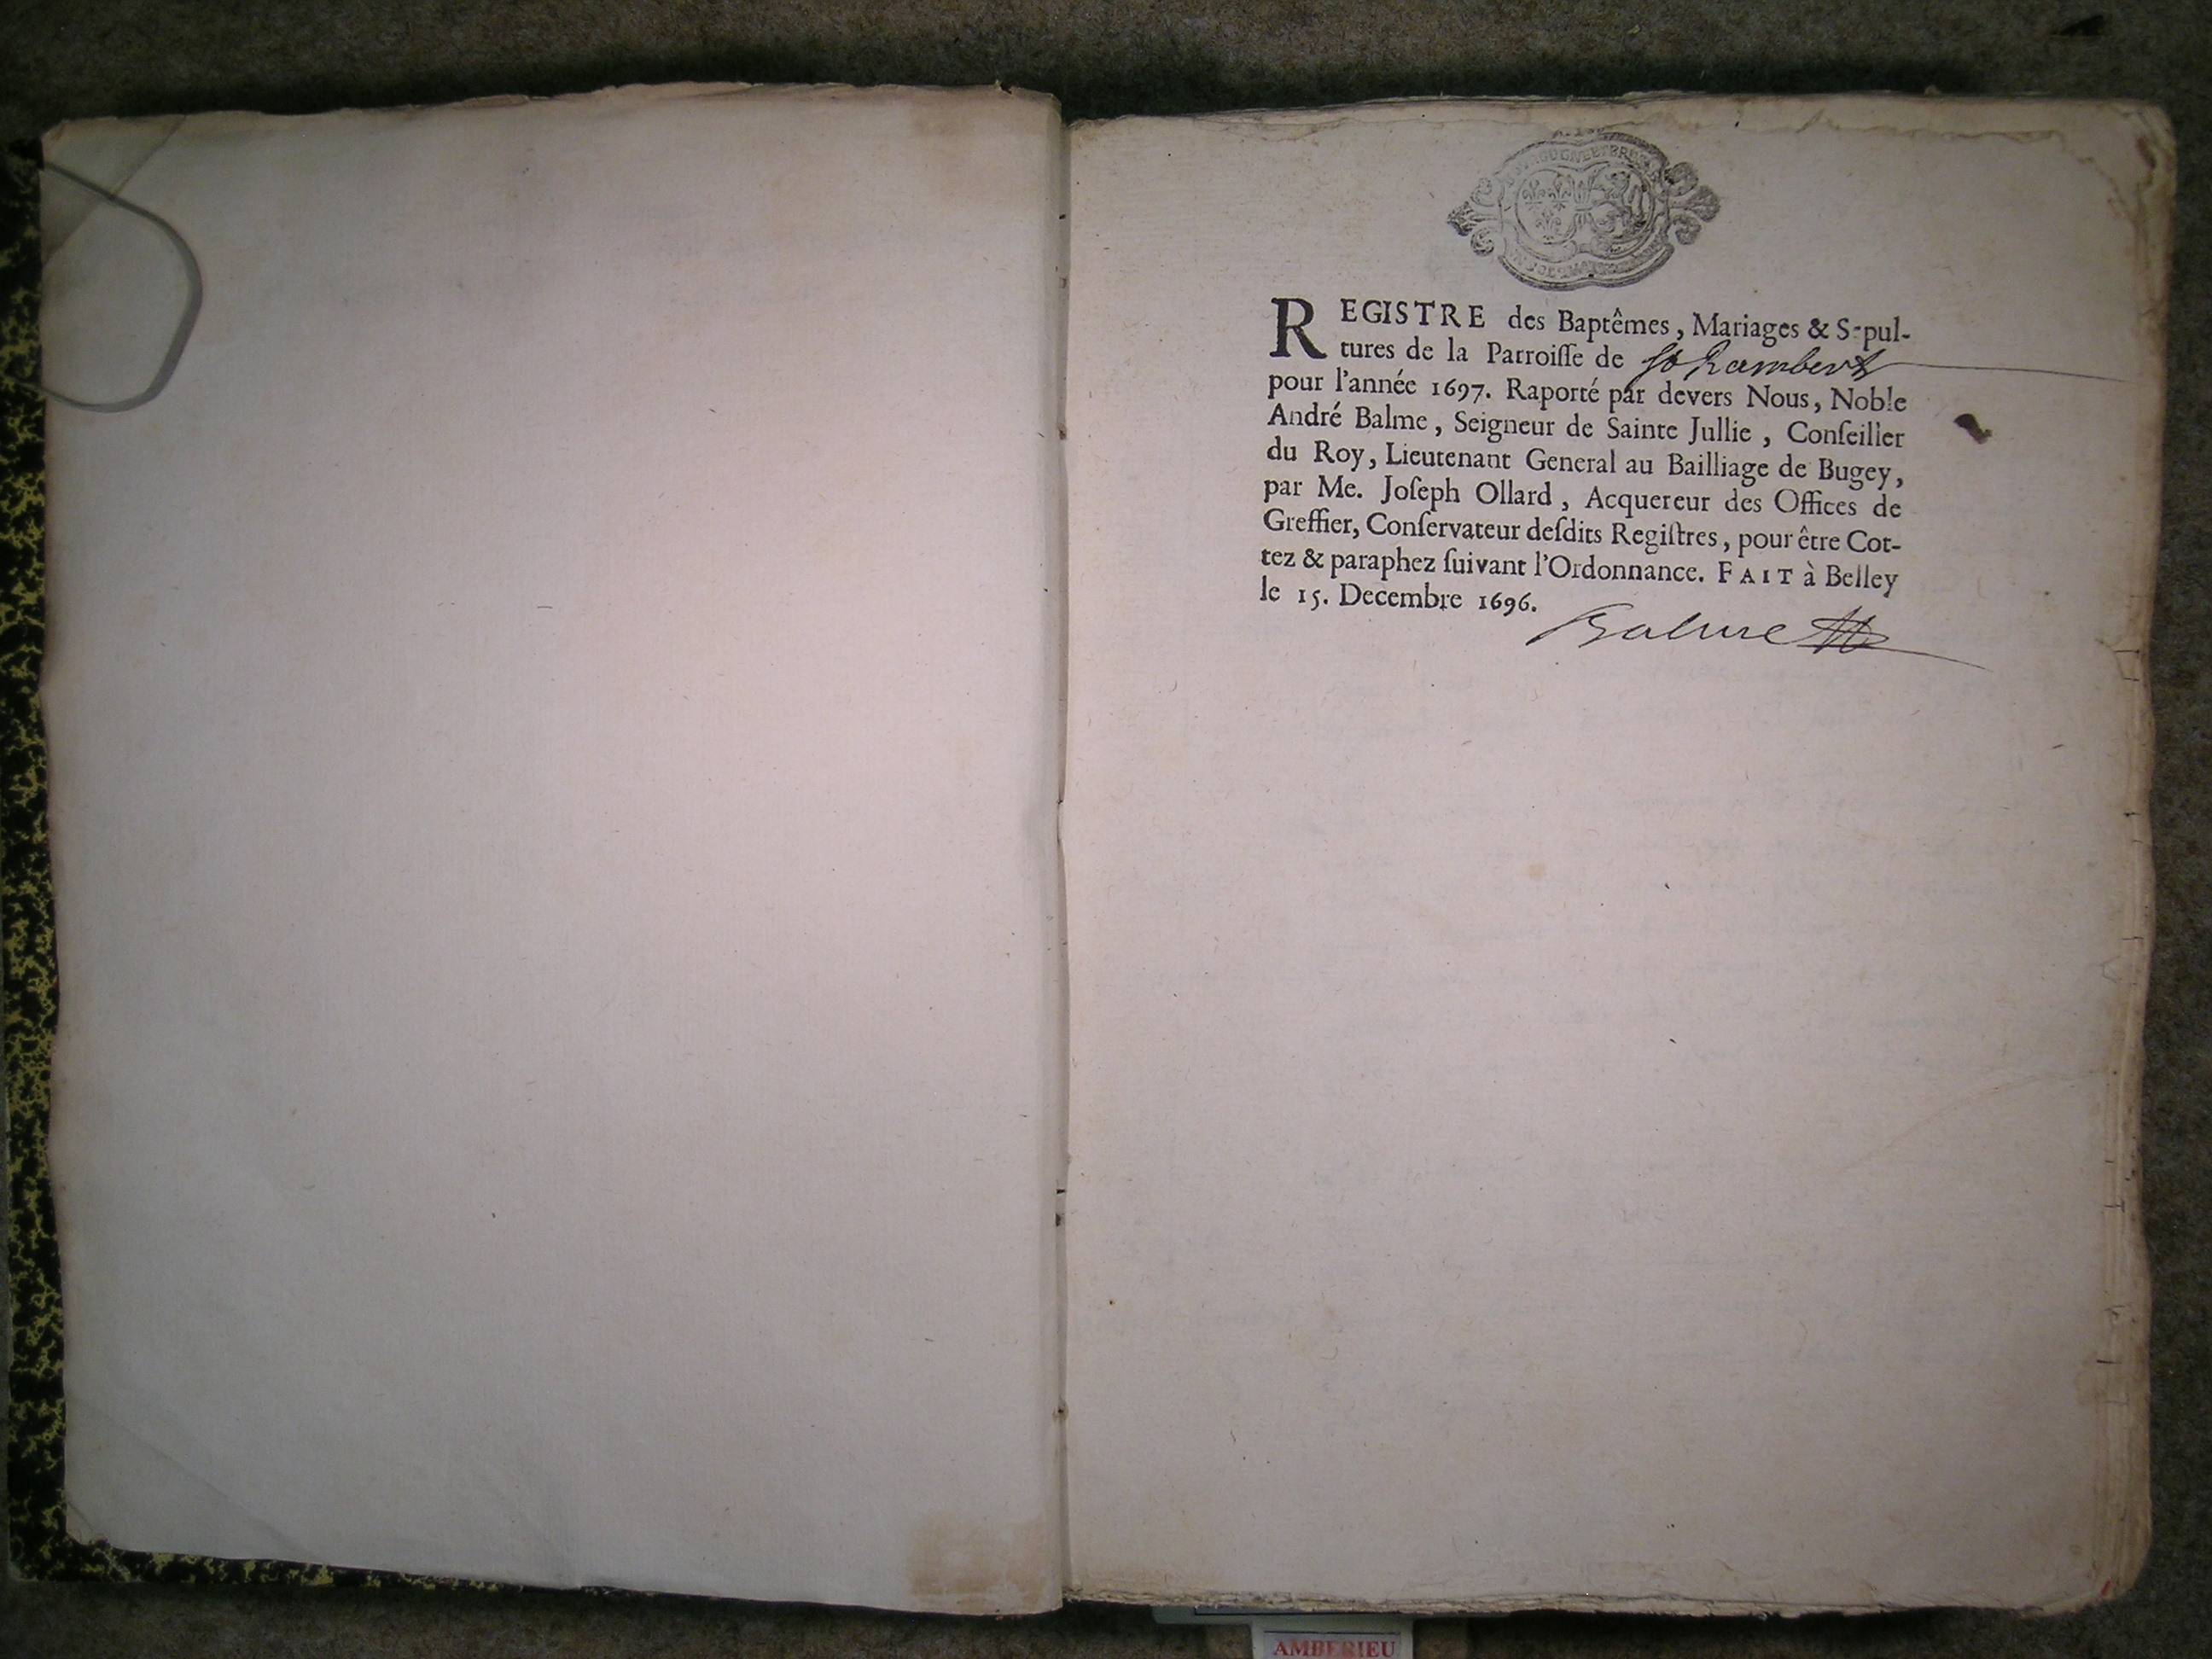 REGISTRE des Baptêmes, Mariages & Sepul-
tures de la Parroiſſe de St Rambert
pour l'année 1697. Raporté par devers Nous, Noble
André Balme, Seigneur de Sainte Jullie, Conſeiller
du Roy, Lieutenant General au Bailliage de Bugey,
par Me. Joſeph Ollard, Acquereur des Offices de
Greffier, Conſervateur deſdits Regiſtres, pour être Cot-
tez & paraphez ſuivant l'Ordonnance. FAIT à Belley
le 15. Decembre 1696.
Balme
AMBERIEU